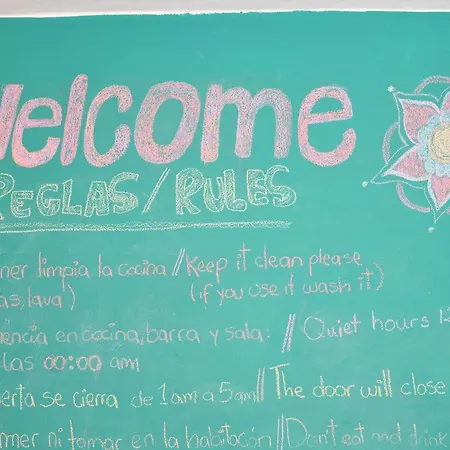 Welcome
REGLAS/RULES
ner limpia la cocina // Keep it clean please
as, lava) (if you use it wash it)
encia en cocina, barra y sala: // Quiet hours 12
las 00:00 am
erta se cierra de 1am a 5am // The door will close
mer ni tomar en la habitación // Dont eat and drink